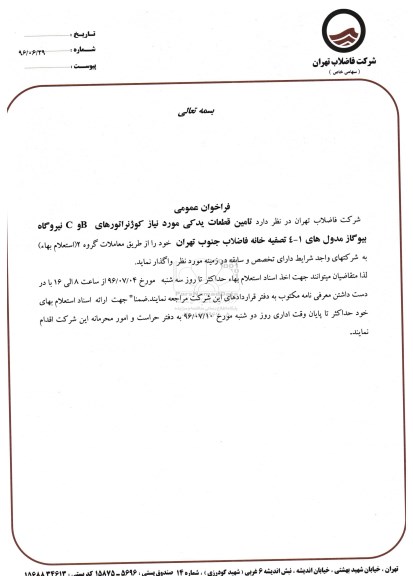 شرکت فاضلاب تهران
( سهامی خاص )
تاریخ :
شماره : ۹۶/۰۶/۲۹
پیوست :
بسمه تعالی
فراخوان عمومی
شرکت فاضلاب تهران در نظر دارد تامین قطعات یدکی مورد نیاز کوژنراتورهای B و C نیروگاه
بیوگاز مدول های ۱-٤ تصفیه خانه فاضلاب جنوب تهران خود را از طریق معاملات گروه ۲(استعلام بهاء)
به شرکتهای واجد شرایط دارای تخصص و سابقه در زمینه مورد نظر واگذار نماید.
لذا متقاضیان میتوانند جهت اخذ اسناد استعلام بهاء حداکثر تا روز سه شنبه مورخ ۹۶/۰۷/۰۴ از ساعت ۸ الی ۱۶ با در
دست داشتن معرفی نامه مکتوب به دفتر قراردادهای این شرکت مراجعه نمایند.ضمنا" جهت ارائه اسناد استعلام بهای
خود حداکثر تا پایان وقت اداری روز دو شنبه مورخ ۹۶/۰۷/۱۰ به دفتر حراست و امور محرمانه این شرکت اقدام
نمایند.
تهران ، خیابان شهید بهشتی ، خیابان اندیشه ، نبش اندیشه ۶ غربی ( شهید گودرزی ) ، شماره ۱۴ صندوق پستی : ۵۶۹۶ – ۱۵۸۷۵ کد پستی : ۳۴۶۱۳ ۱۵۶۸۸